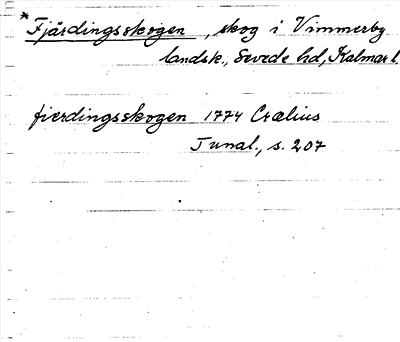 *Fjärdingsskogen, skog i Vimmerby
landsk., Sevede hd, Kalmar l.
fierdingsskogen 1774 Crælius
Tunal., s. 207